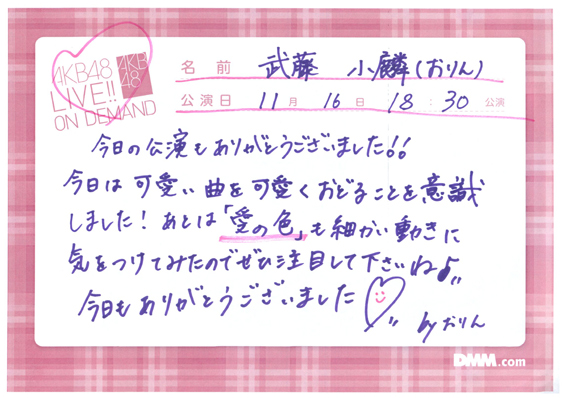 AKB48
LIVE!!
ON DEMAND
AKB
48
名前 武藤 小麟(おりん)
公演日 11月16日 18:30公演
今日の公演もありがとうございました!!
今日は可愛い曲を可愛くおどることを意識
しました!あとは「愛の色」も細かい動きに
気をつけてみたのでぜひ注目して下さいね♪
今日もありがとうございました
byおりん
DMM.com